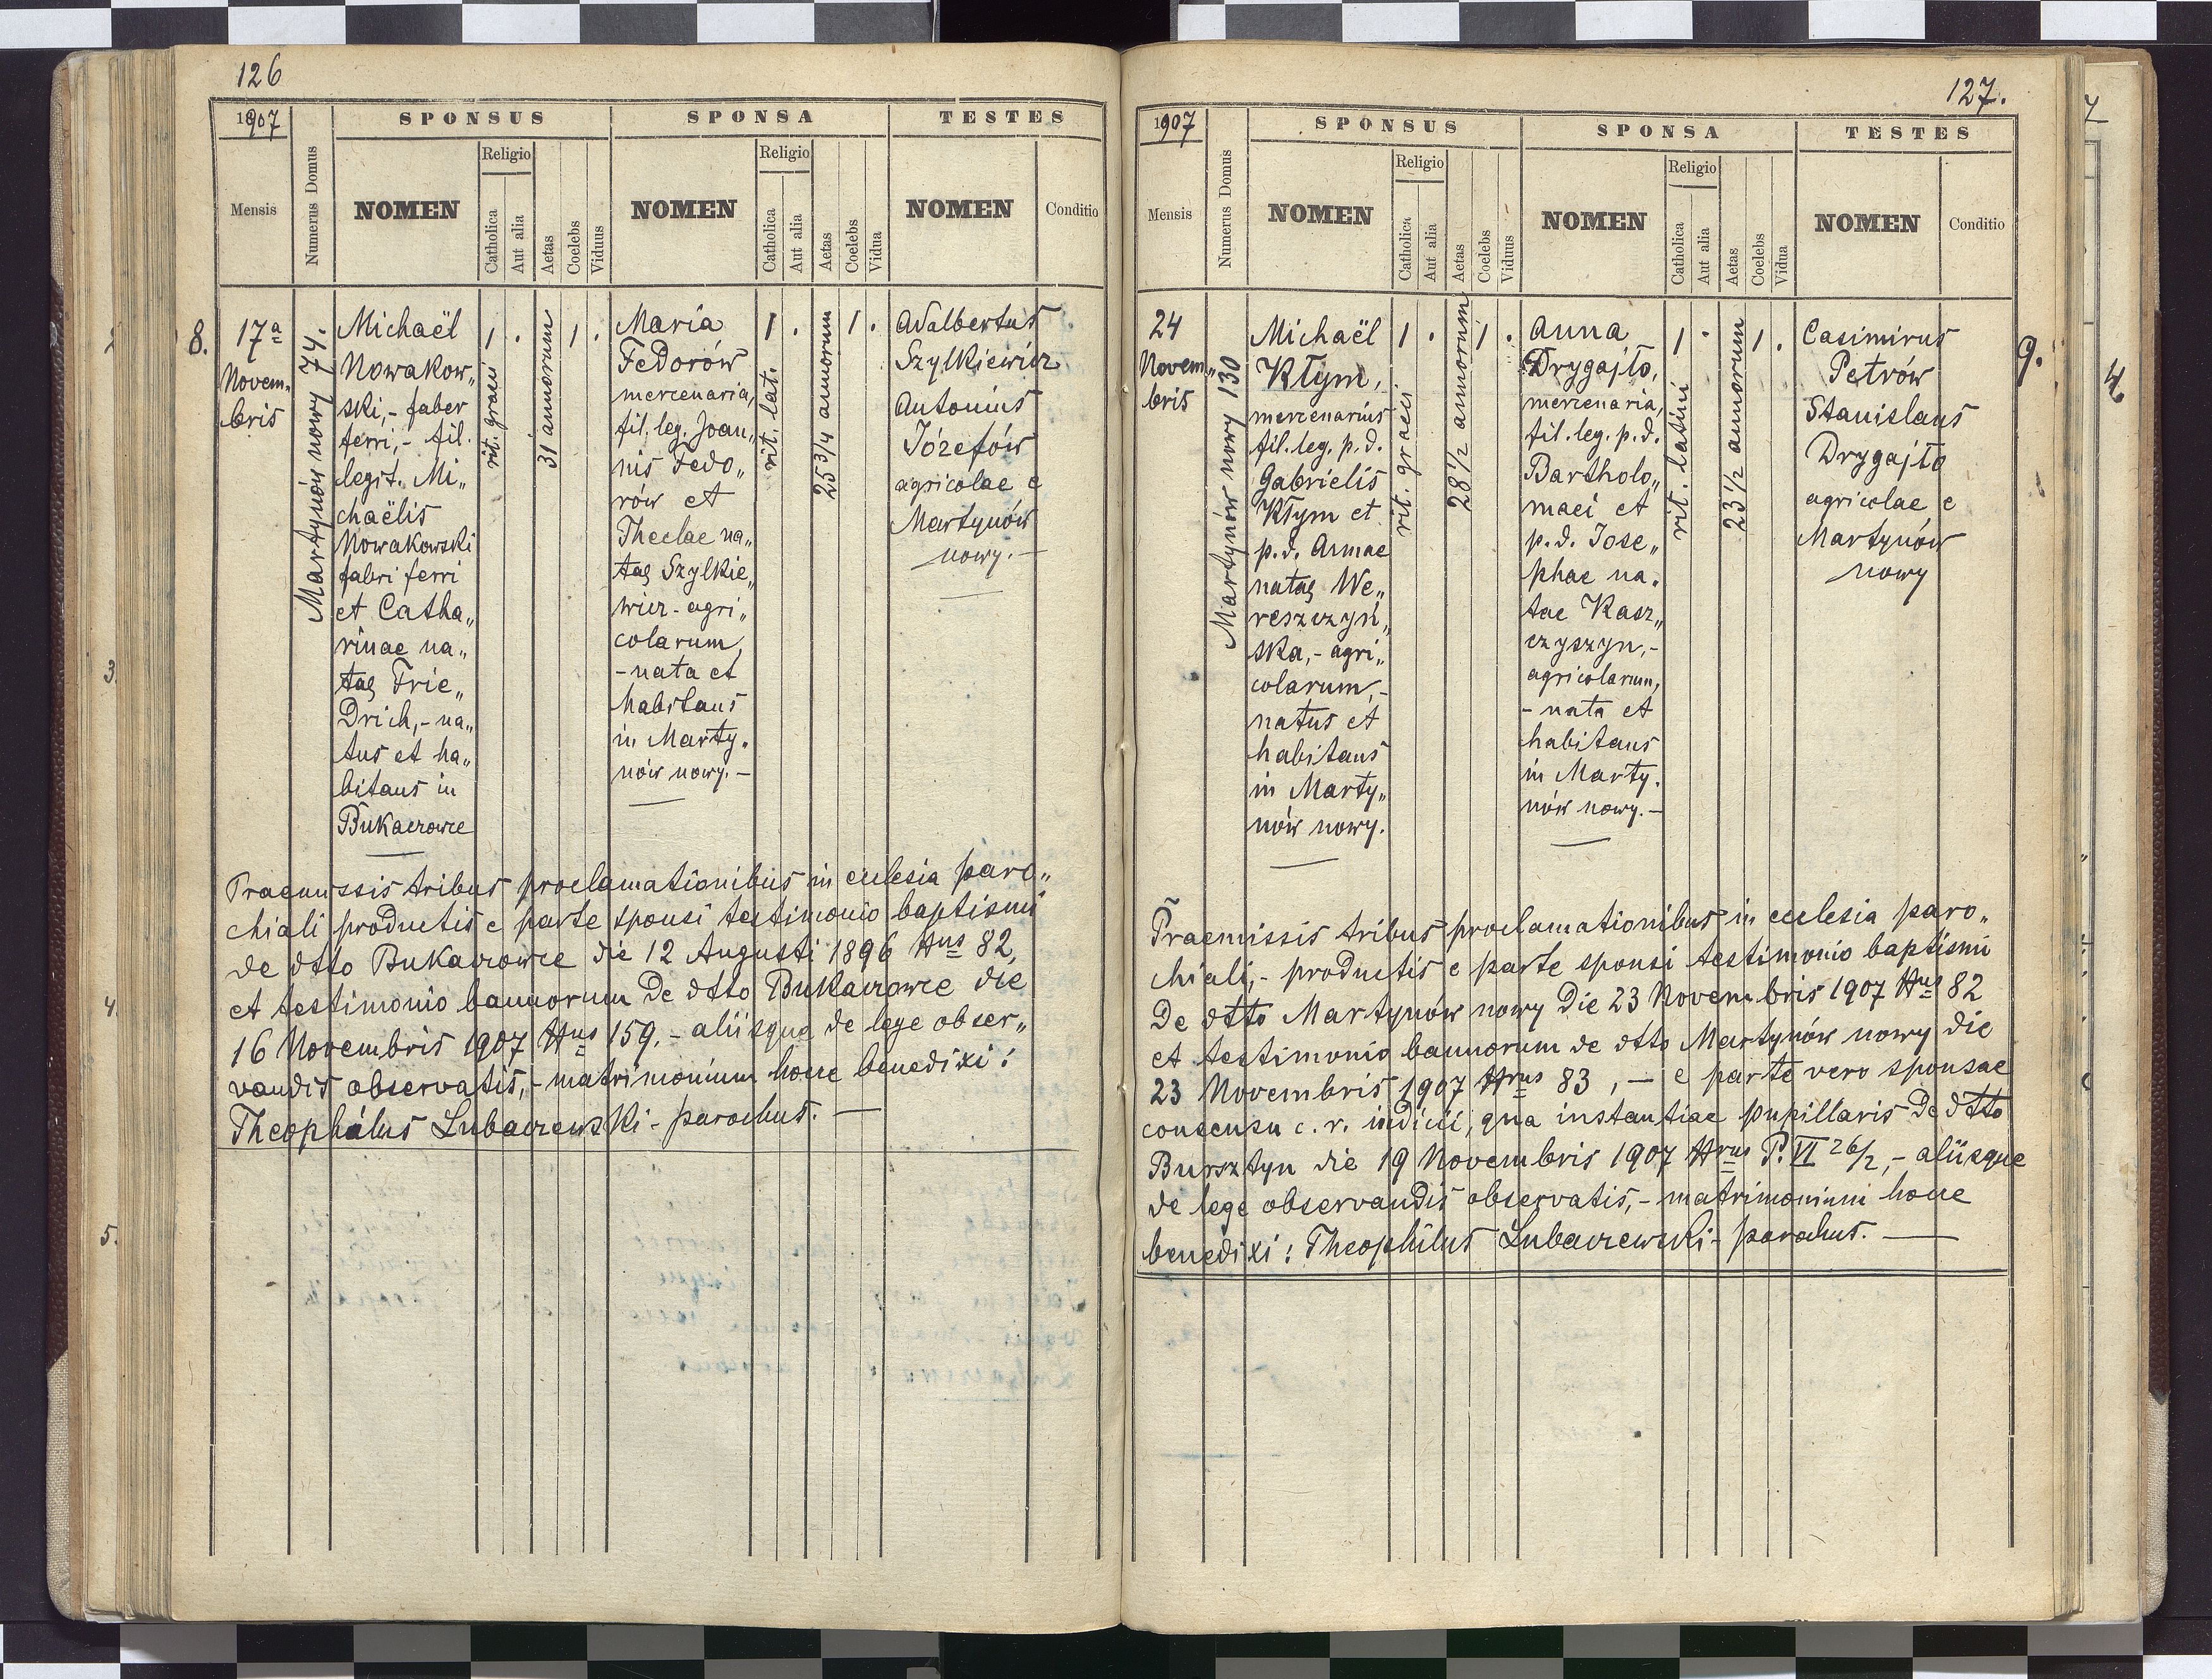 126
1907
SPONSUS
SPONSA
TESTES
Mensis
Numerus Domus
NOMEN
Religio
Catholica
Aut alia
Aetas
Coelebs
Viduus
NOMEN
Religio
Catholica
Aut alia
Aetas
Coelebs
Vidua
NOMEN
Conditio
8.
17a
Novem„
bris
Martynów nowy 74.
Michaël
Nowakow„
ski,- faber
ferri,- fil.
legit. Mi„
chaëlis
Nowakowski
fabri ferri
et Catha„
rinae na„
tae Frie„
Drich,- na„
tus et ha„
bitans in
Bukaczowce
1
rit. graeci
.
31 annorum
1
.
Maria
Fedorów
mercenaria,
fil. leg. Joan„
nis Fedo„
rów et
Theclae na„
tae Szylkie„
wicz - agri„
colarum,
- nata et
habitans
in Marty„
nów nowy. -
1
rit. lat.
.
25 3/4 annorum
1
.
Adalbertus
Szylkiewicz
Antonius
Józefów
agricolae e
Martynów
nowy. -
Praemissis tribus proclamationibus in ecclesia paro„
chiali productis e parte sponsi testimonio baptismi
de dtto Bukaczowce die 12 Augusti 1896 Nus 82,
et testimonio bannorum de dtto Bukaczowce die
16 Novembris 1907 Nus 159. - aliisque de lege obser„
vandis observatis, - matrimonium hocce benedixi:
Theophilus Lubaczewski - parochus. -
3.
4.
5.
127.
1907
SPONSUS
SPONSA
TESTES
Mensis
Numerus Domus
NOMEN
Religio
Catholica
Aut alia
Aetas
Coelebs
Viduus
NOMEN
Religio
Catholica
Aut alia
Aetas
Coelebs
Vidua
NOMEN
Conditio
24
Novem„
bris
Martynów nowy 130
Michaël
Kłym,
mercenarius
fil. leg. p. d.
Gabrielis
Kłym et
p. d. Annae
natae We„
reszczyń„
ska, - agri„
colarum, -
natus et
habitans
in Marty„
nów nowy.
1
rit. graeci
.
28 1/2 annorum
1
.
Anna
Drygajło,
mercenaria,
fil. leg. p. d.
Bartholo„
maei et
p. d. Jose„
phae na„
tae Kasz„
czyszyn, -
agricolarum,
- nata et
habitans
in Marty„
nów nowy. -
1
rit. latini
.
23 1/2 annorum
1
.
Casimirus
Petrów
Stanislaus
Drygajło
agricolae e
Martynów
nowy
9.
4.
Praemissis tribus proclamationibus in ecclesia paro„
chiali, - productis e parte sponsi testimonio baptismi
de dtto Martynów nowy die 23 Novembris 1907 Nus 82
et testimonio bannorum de dtto Martynów nowy die
23 Novembris 1907 Nrus 83, - e parte vero sponsae
consensu c. r. iudicii, qua instantiae pupillaris de dtto
Bursztyn die 19 Novembris 1907 Nrus P. VI 26/2, - aliisque
de lege observandis observatis, - matrimonium hocce
benedixi: Theophilus Lubaczewski - parochus. -